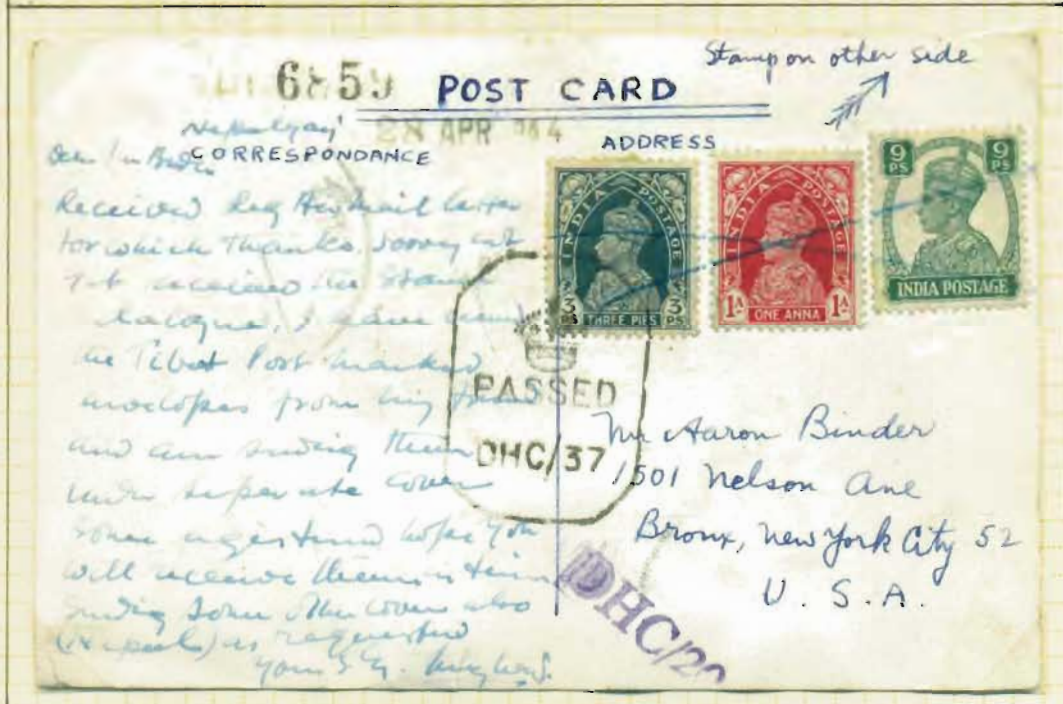 Stamp on other side
6859
POST CARD
28 APR 1944
CORRESPONDANCE
ADDRESS
Received Reg Air mail letter
for which thanks. Sorry
received the
I have
the Tibet Post marked
envelopes from my
and am sending them
under seperate cover
some registered hope you
will receive them in time
sending some other covers also
as requested
Yours
INDIA POSTAGE
3 PS
THREE PIES
3 PS
INDIA POSTAGE
1A
ONE ANNA
1A
9 PS
9 PS
INDIA POSTAGE
PASSED
DHC/37
Mr Aaron Binder
1501 Nelson Ave
Bronx, New York City 52
U. S. A.
DHC/20